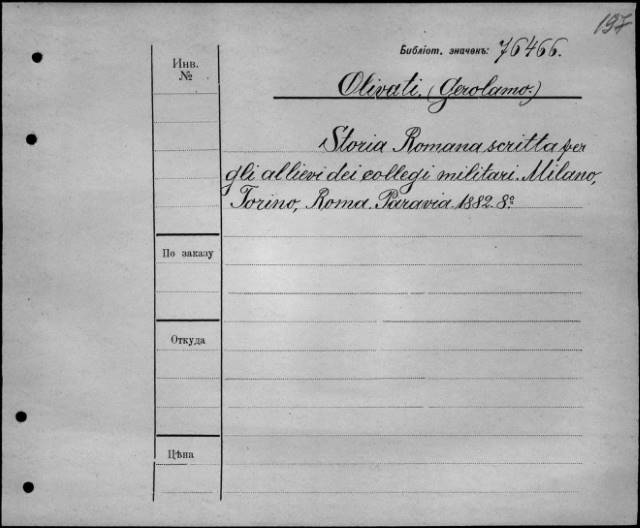 197
Библіот. значекъ: 76466.
Инв.
№
Olivati. (Gerolamo.)
Storia Romana scritta per
gli allievi dei collegi militari. Milano,
Torino, Roma. Paravia 1882. 8º.
По заказу
Откуда
Цѣна